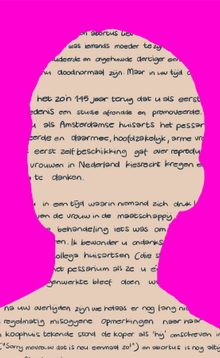 abortus
was iemands moeder te zijn
de en ongehuwde dertiger een
nu doodnormaal zijn. Maar in uw tijd
het zo'n 145 jaar terug dat u als eerst
edenis een studie afrondde en promoveerde.
u als Amsterdamse huisarts het pessar
eerde en daarmee, hoofdzakelijk, arme vro
eerst zelf beschikking gaf over reprodu
vrouwen in Nederland kiesrecht kregen e
te danken.
u in een tijd waarin niemand zich druk
en de vrouw in de maatschappij.
behandeling iets was om
en. Ik bewonder u ondanks
ollega huisartsen (die s
et pessarium als ze u e
genwerkte bleef doen w
na uw overlijden zijn we helaas er nog lang nie
regelmatig misogyne opmerkingen naar haar
koophuis tekende stond de koper als 'hij' omschreven in
("Sorry mevrouw dat is nou eenmaal zo!") en abortus is nog altij